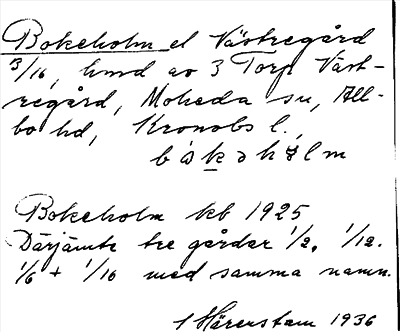 Bokeholm el Västregård
3/16, hmd av 3 Torp Väst-
regård, Moheda sn, All-
bo hd, Kronobs l.
Bokeholm kb 1925
Därjämte tre gårdar 1/2, 1/12.
1/6 + 1/16 med samma namn.
Härenstam 1936